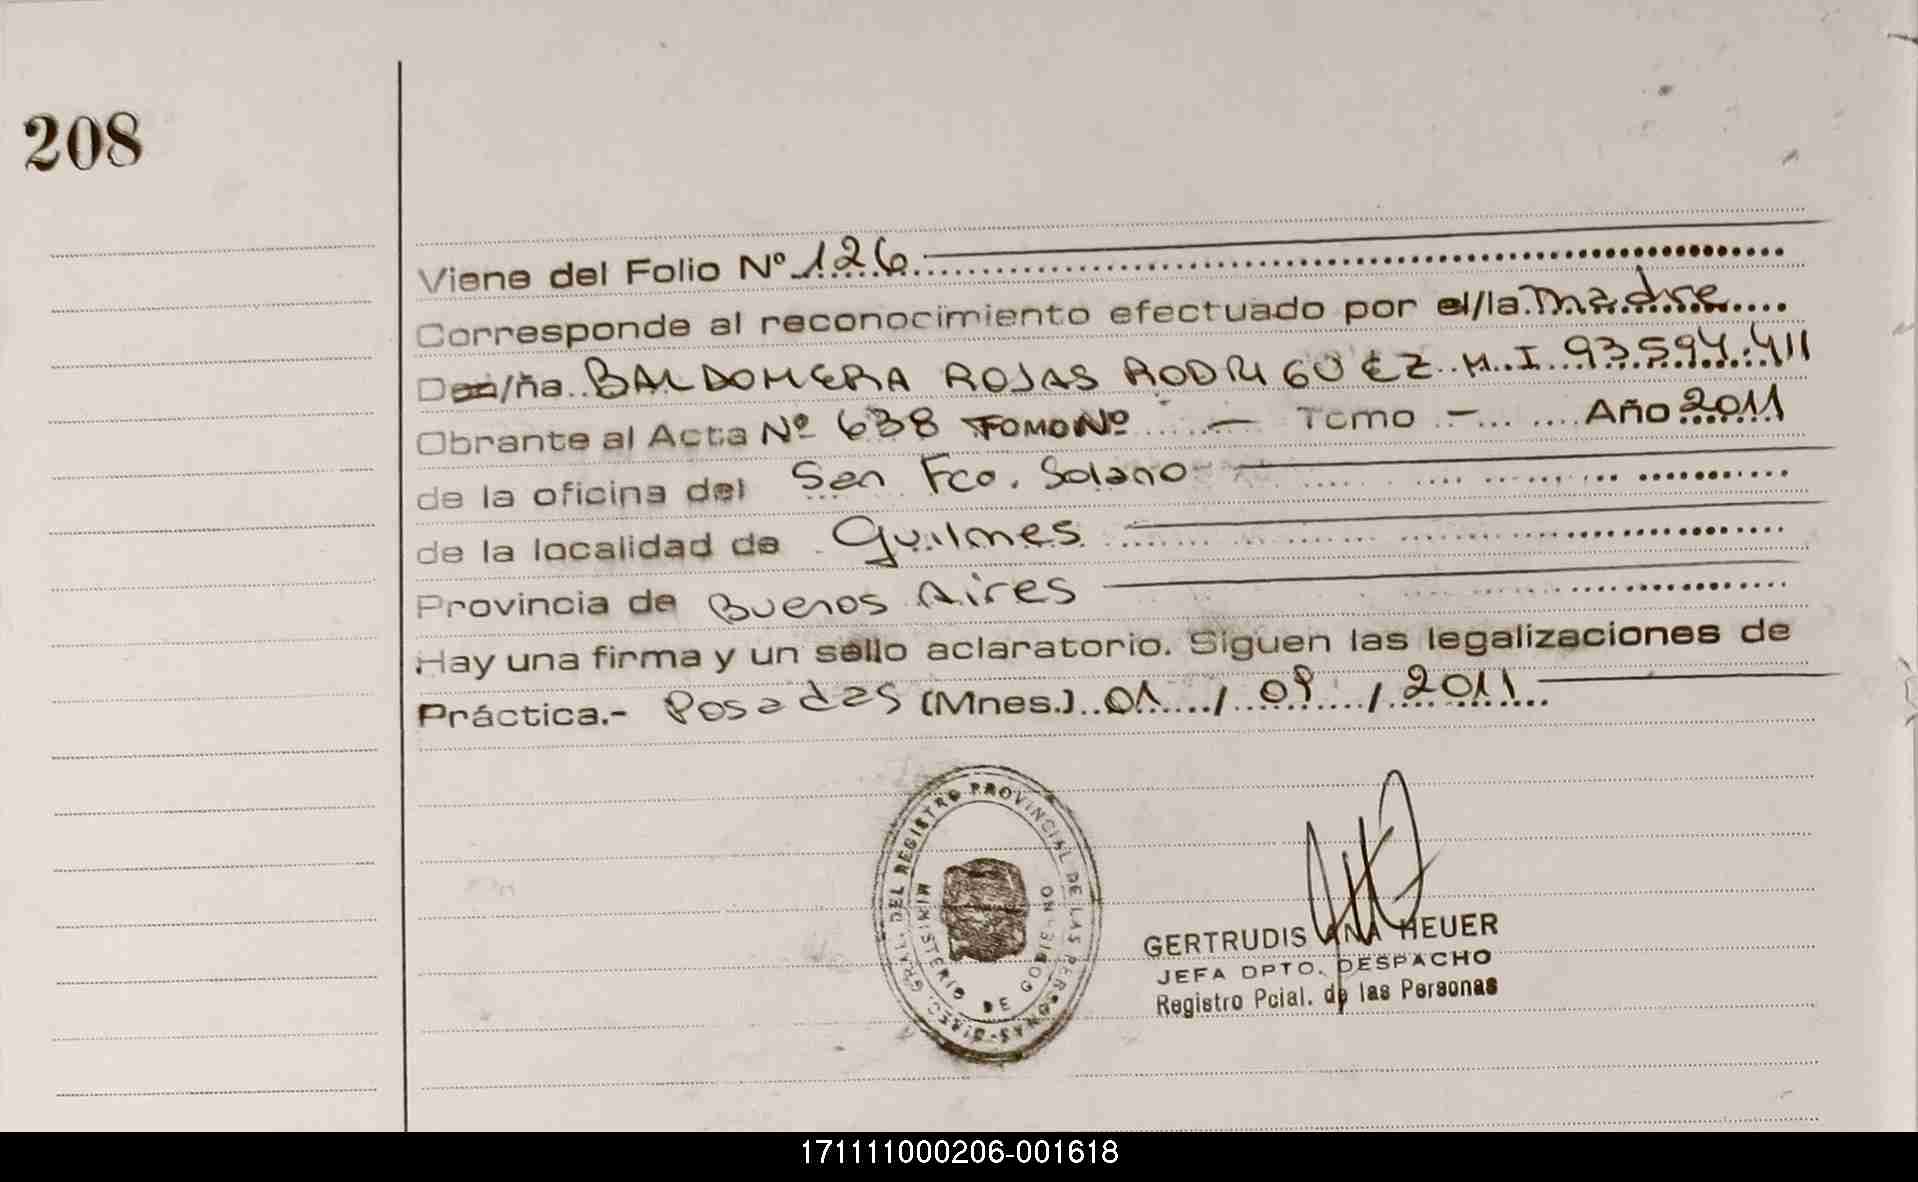 208
Viene del Folio Nº 126
Corresponde al reconocimiento efectuado por el/la madre
Don/ña BALDOMERA ROJAS RODRIGUEZ M.I 93.594.411
Obrante al Acta Nº 638 TOMO Nº — Tomo — Año 2011
de la oficina del San Fco. Solano
de la localidad de Quilmes
Provincia de Buenos Aires
Hay una firma y un sello aclaratorio. Siguen las legalizaciones de
Práctica.- Posadas (Mnes.) 01 / 09 / 2011
DIREC. GRAL. DEL REGISTRO PROVINCIAL DE LAS PERSONAS
MINISTERIO DE GOBIERNO
GERTRUDIS ANA HEUER
JEFA DPTO. DESPACHO
Registro Pcial. de las Personas
171111000206-001618